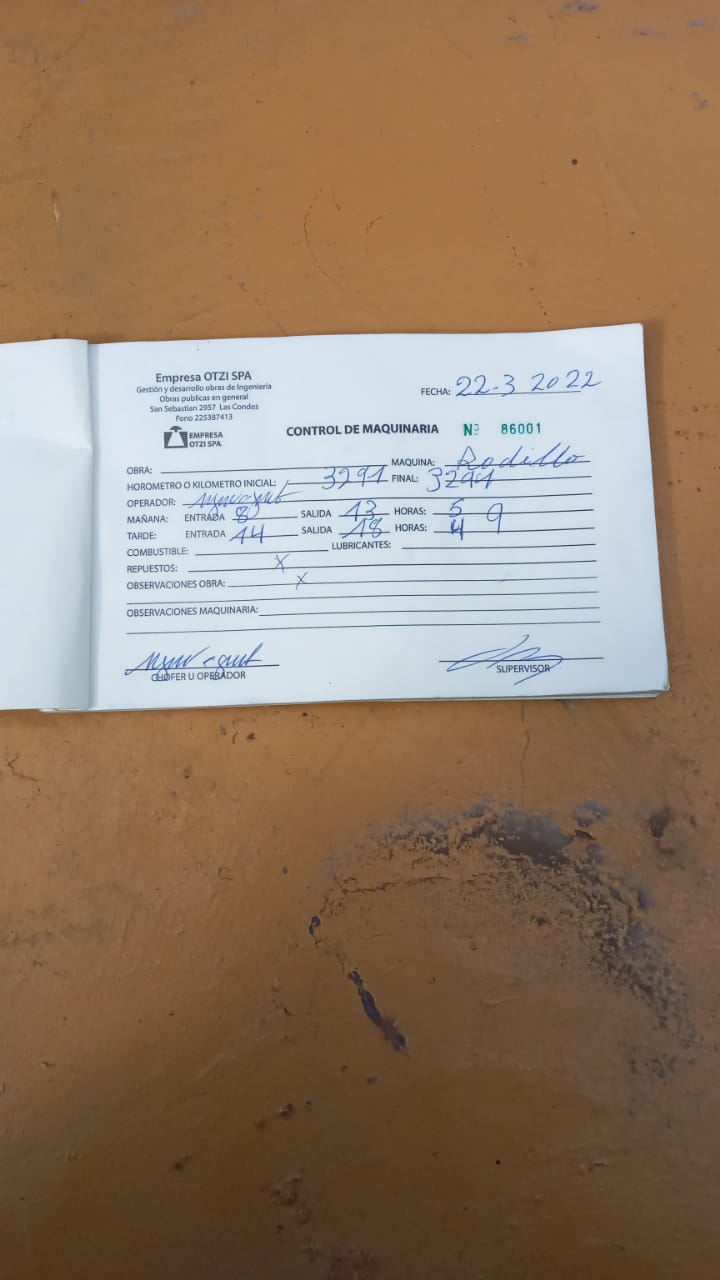 Empresa OTZI SPA
Gestión y desarrollo obras de Ingenieria
Obras publicas en general
San Sebastian 2957 Las Condes
Fono 225387413
EMPRESA
OTZI SPA
FECHA: 22-3 2022
CONTROL DE MAQUINARIA Nº 86001
OBRA: MAQUINA: Rodillo
HOROMETRO O KILOMETRO INICIAL: 3291 FINAL: 3291
OPERADOR:
MAÑANA: ENTRADA 8 SALIDA 13 HORAS: 5 9
TARDE: ENTRADA 14 SALIDA 18 HORAS: 4
COMBUSTIBLE: LUBRICANTES:
REPUESTOS: X
OBSERVACIONES OBRA: X
OBSERVACIONES MAQUINARIA:
CHOFER U OPERADOR SUPERVISOR